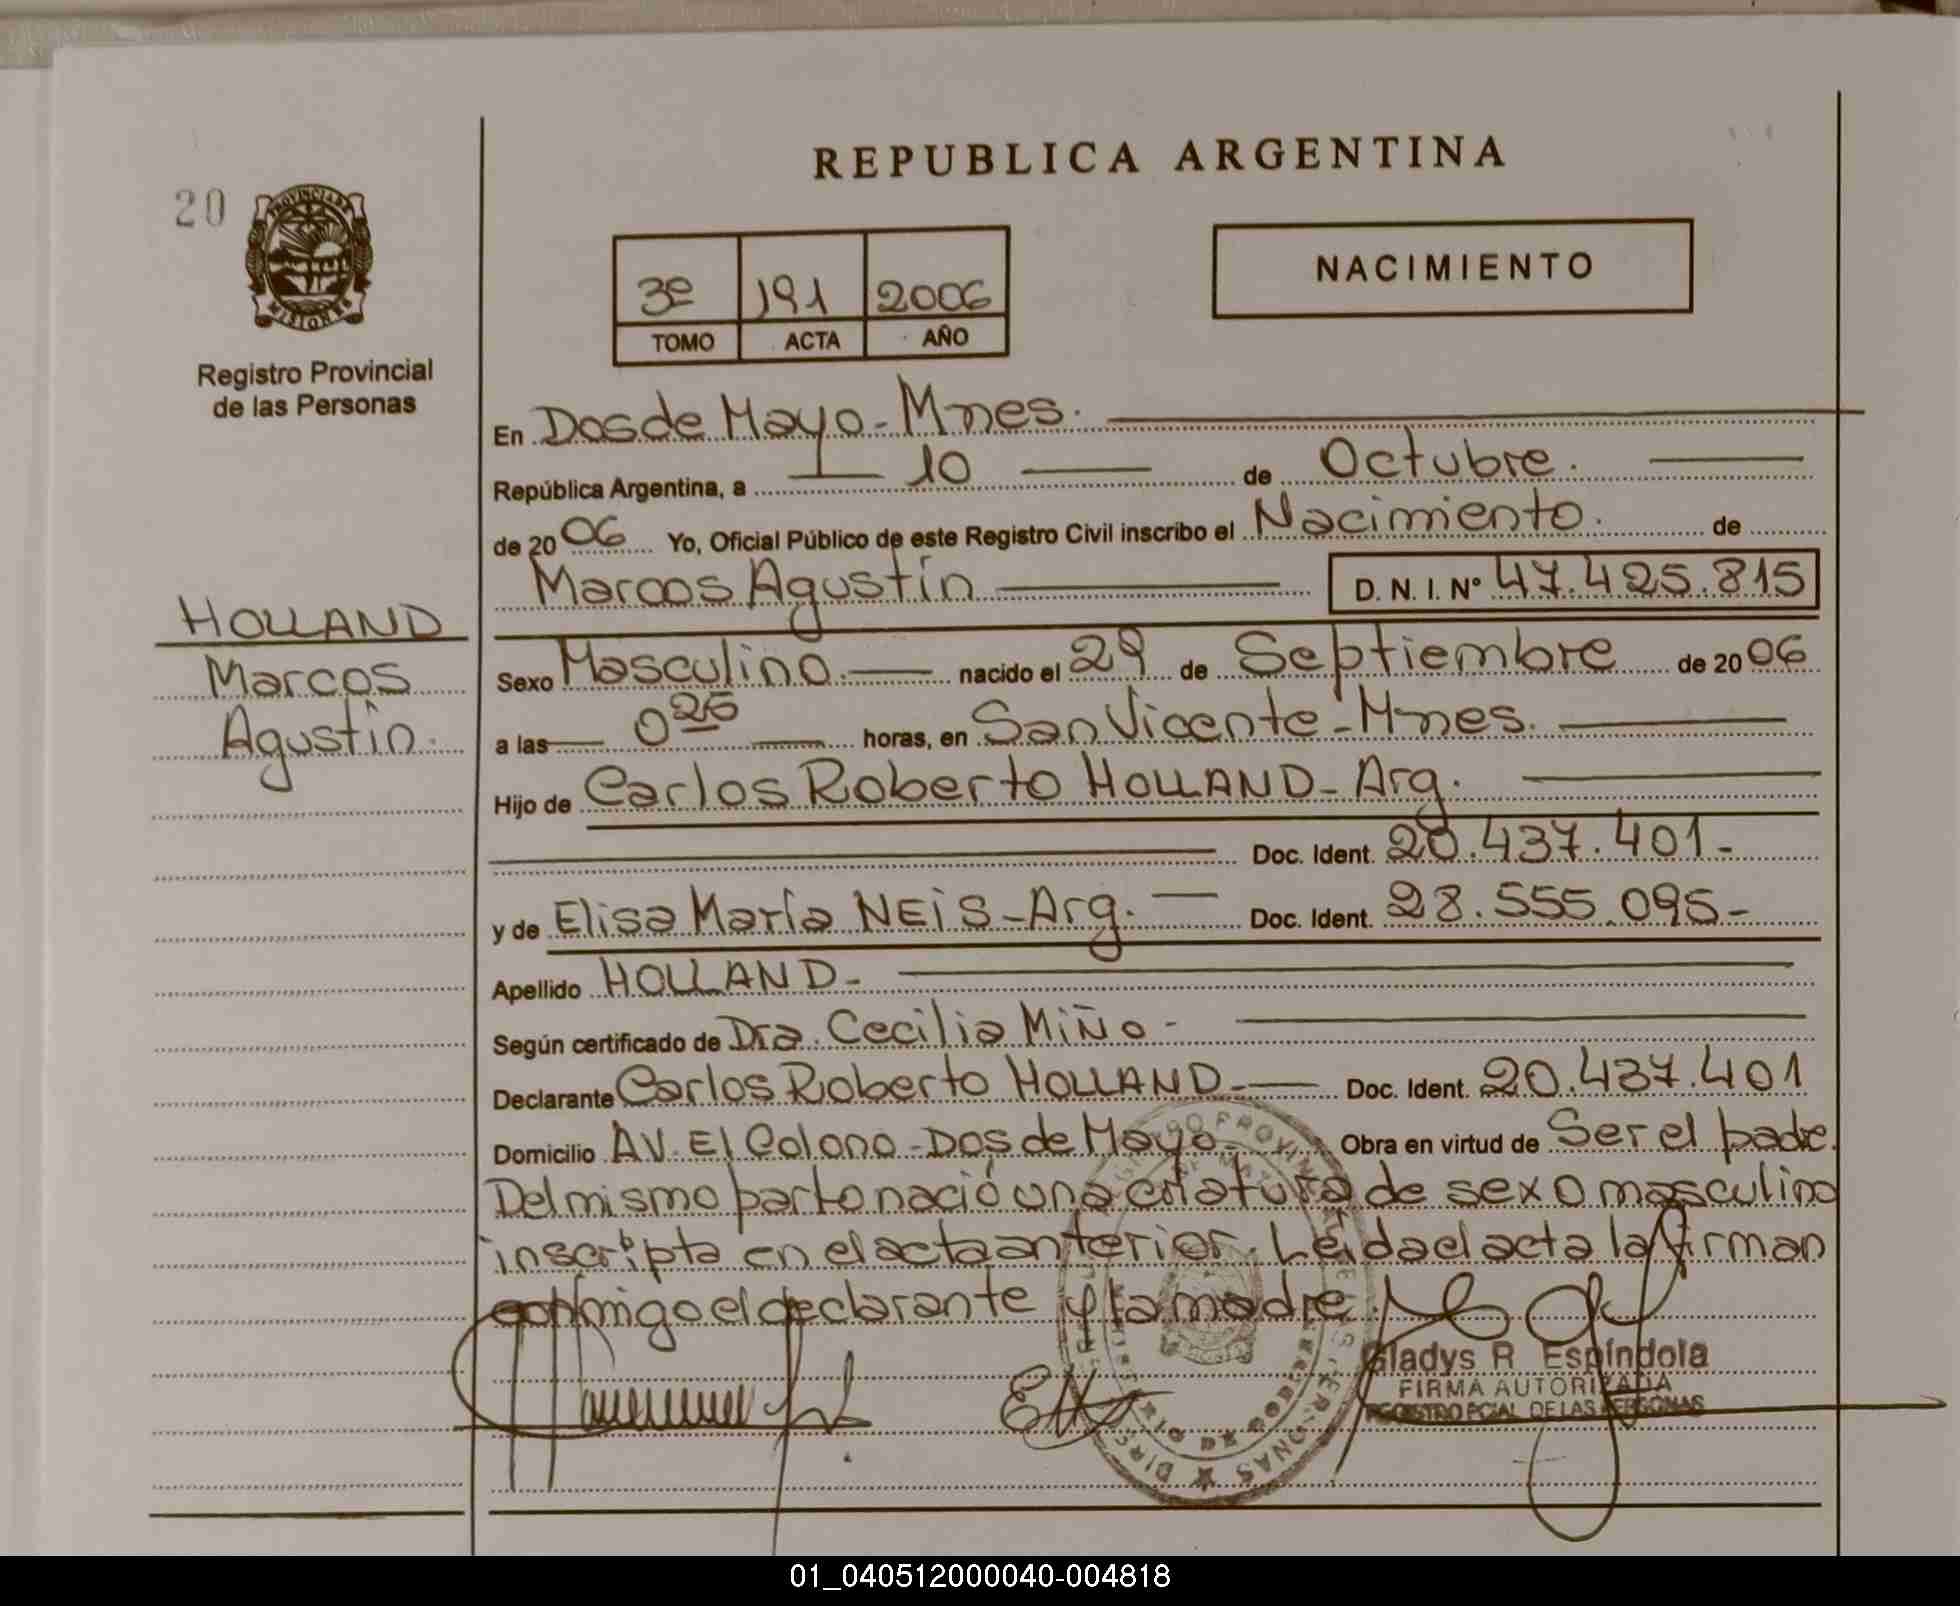 REPUBLICA ARGENTINA
20
PROVINCIA DE
MISIONES
Registro Provincial
de las Personas
3º 191 2006
TOMO ACTA AÑO
NACIMIENTO
En Dos de Mayo - Mnes.
República Argentina, a 10 de Octubre.
de 2006 Yo, Oficial Público de este Registro Civil inscribo el Nacimiento. de
Marcos Agustín D. N. I. Nº 47.425.815
HOLLAND
Marcos
Agustín.
Sexo Masculino. nacido el 29 de Septiembre de 2006
a las 0 25 horas, en San Vicente - Mnes.
Hijo de Carlos Roberto HOLLAND - Arg.
Doc. Ident. 20.437.401-
y de Elisa María NEIS - Arg. Doc. Ident. 28.555.095-
Apellido HOLLAND-
Según certificado de Dra. Cecilia Miño-
Declarante Carlos Roberto HOLLAND- Doc. Ident. 20.437.401
Domicilio AV. El Colono - Dos de Mayo- Obra en virtud de Ser el padre.
Del mismo parto nació una criatura de sexo masculino
inscripta en el acta anterior. Leída el acta la firman
conmigo el declarante y la madre.
Gladys R. Espíndola
FIRMA AUTORIZADA
REGISTRO PCIAL. DE LAS PERSONAS
01_040512000040-004818